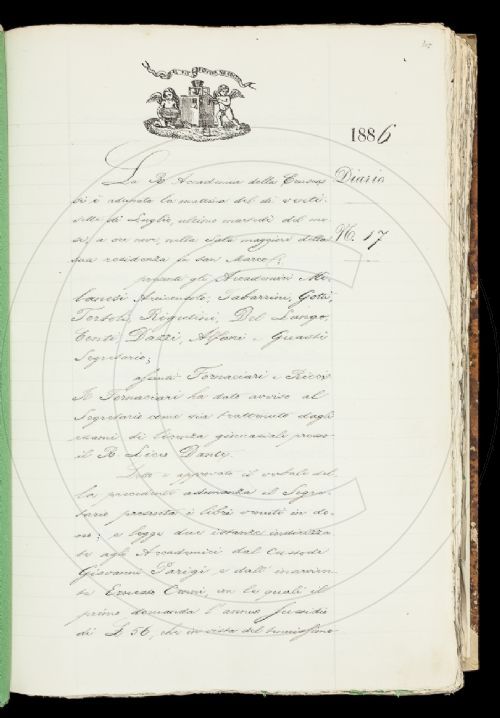 1886
Diario
N. 17
La R. Accademia della Crusca
si è adunata la mattina del dì venti-
sette di Luglio, ultimo martedì del me-
se, a ore nove, nella Sala maggiore della
sua residenza in San Marco;
presenti gli Accademici Mi-
lanesi Arciconsolo, Tabarrini, Gotti,
Tortoli, Rigutini, Del Lungo,
Conti, Dazzi, Alfani e Guasti
Segretario;
assenti Fornaciari e Ricci.
Il Fornaciari ha dato avviso al
Segretario come sia trattenuto dagli
esami di licenza ginnasiale presso
il R. Liceo Dante.
Letto e approvato il verbale del-
la precedente adunanza il Segre-
tario presenta i libri venuti in do-
no; e legge due istanze indirizza-
te agli Accademici dal Custode
Giovanni Parigi, e dall' inservien-
te Ernesto, con le quali il
primo domanda l' annuo sussidio
di L 56, che in vista del tenuissimo